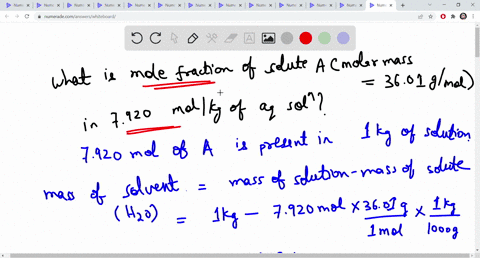 numerade.com/answers/whiteboard/
What is mole fraction of solute A (molar mass
= 36.01 g/mol)
in 7.920 mol/kg of aq solⁿ?
7.920 mol of A is present in 1 kg of solution
mass of solvent = mass of solution - mass of solute
(H₂O) = 1kg - 7.920 mol × 36.01 g / 1 mol × 1 kg / 1000g